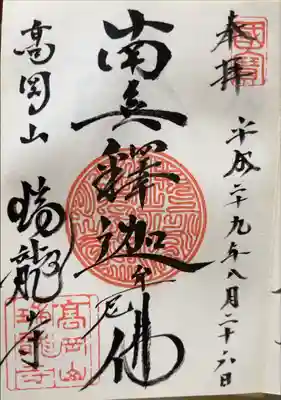 國寶
奉拝
平成二十九年八月二十六日
南無釋迦牟尼佛
高岡山
瑞龍寺
高岡山
瑞龍寺